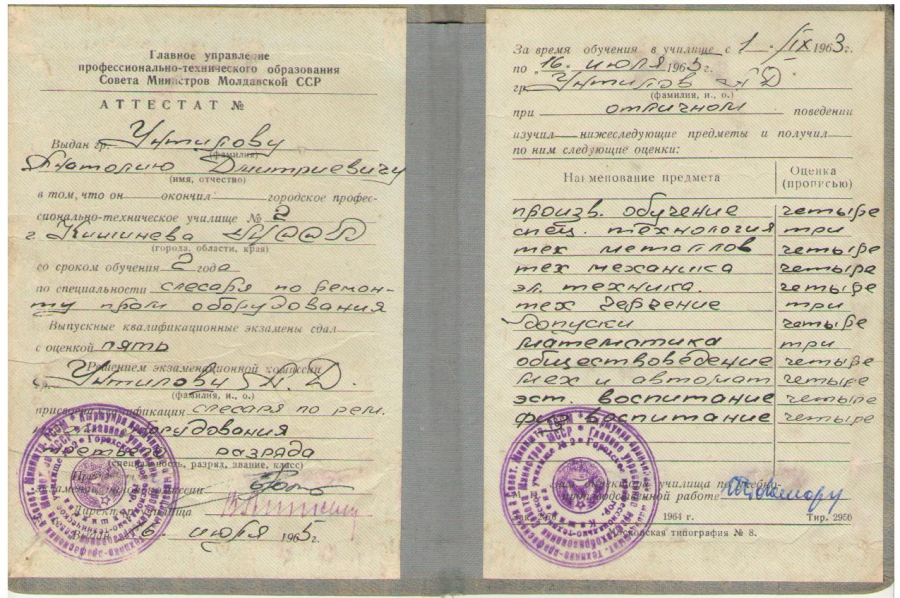 Главное управление
профессионально-технического образования
Совета Министров Молдавской ССР
АТТЕСТАТ №
Выдан гр. Унтилову
(фамилия)
Анатолию Дмитриевичу
(имя, отчество)
в том, что он окончил городское профес-
сионально-техническое училище № 2
г. Кишинева
(города, области, края)
со сроком обучения 2 года
по специальности слесаря по ремон-
ту пром оборудования
Выпускные квалификационные экзамены сдал
с оценкой пять
Решением экзаменационной комиссии
Унтилову А. Д.
(фамилия, и., о.)
присвоена квалификация слесаря по рем.
оборудования
третьего разряда
(специальность, разряд, звание, класс)
Директор училища
Выдан 16 июля 1965 г.
За время обучения в училище с 1. IX 1963 г.
по 16. июля 1965 г.
гр. Унтилов А Д.
(фамилия, и., о.)
при отличном поведении
изучил нижеследующие предметы и получил
по ним следующие оценки:
Наименование предмета Оценка (прописью)
произв. обучение четыре
спец. технология три
тех металлов четыре
тех механика четыре
эл. техника. четыре
тех черчение три
допуски четыре
математика три
обществоведение четыре
мех и автомат четыре
эст. воспитание четыре
физ воспитание четыре
училища по учебно-
производственной работе
1964 г. Тир. 2950
Московская типография № 8.